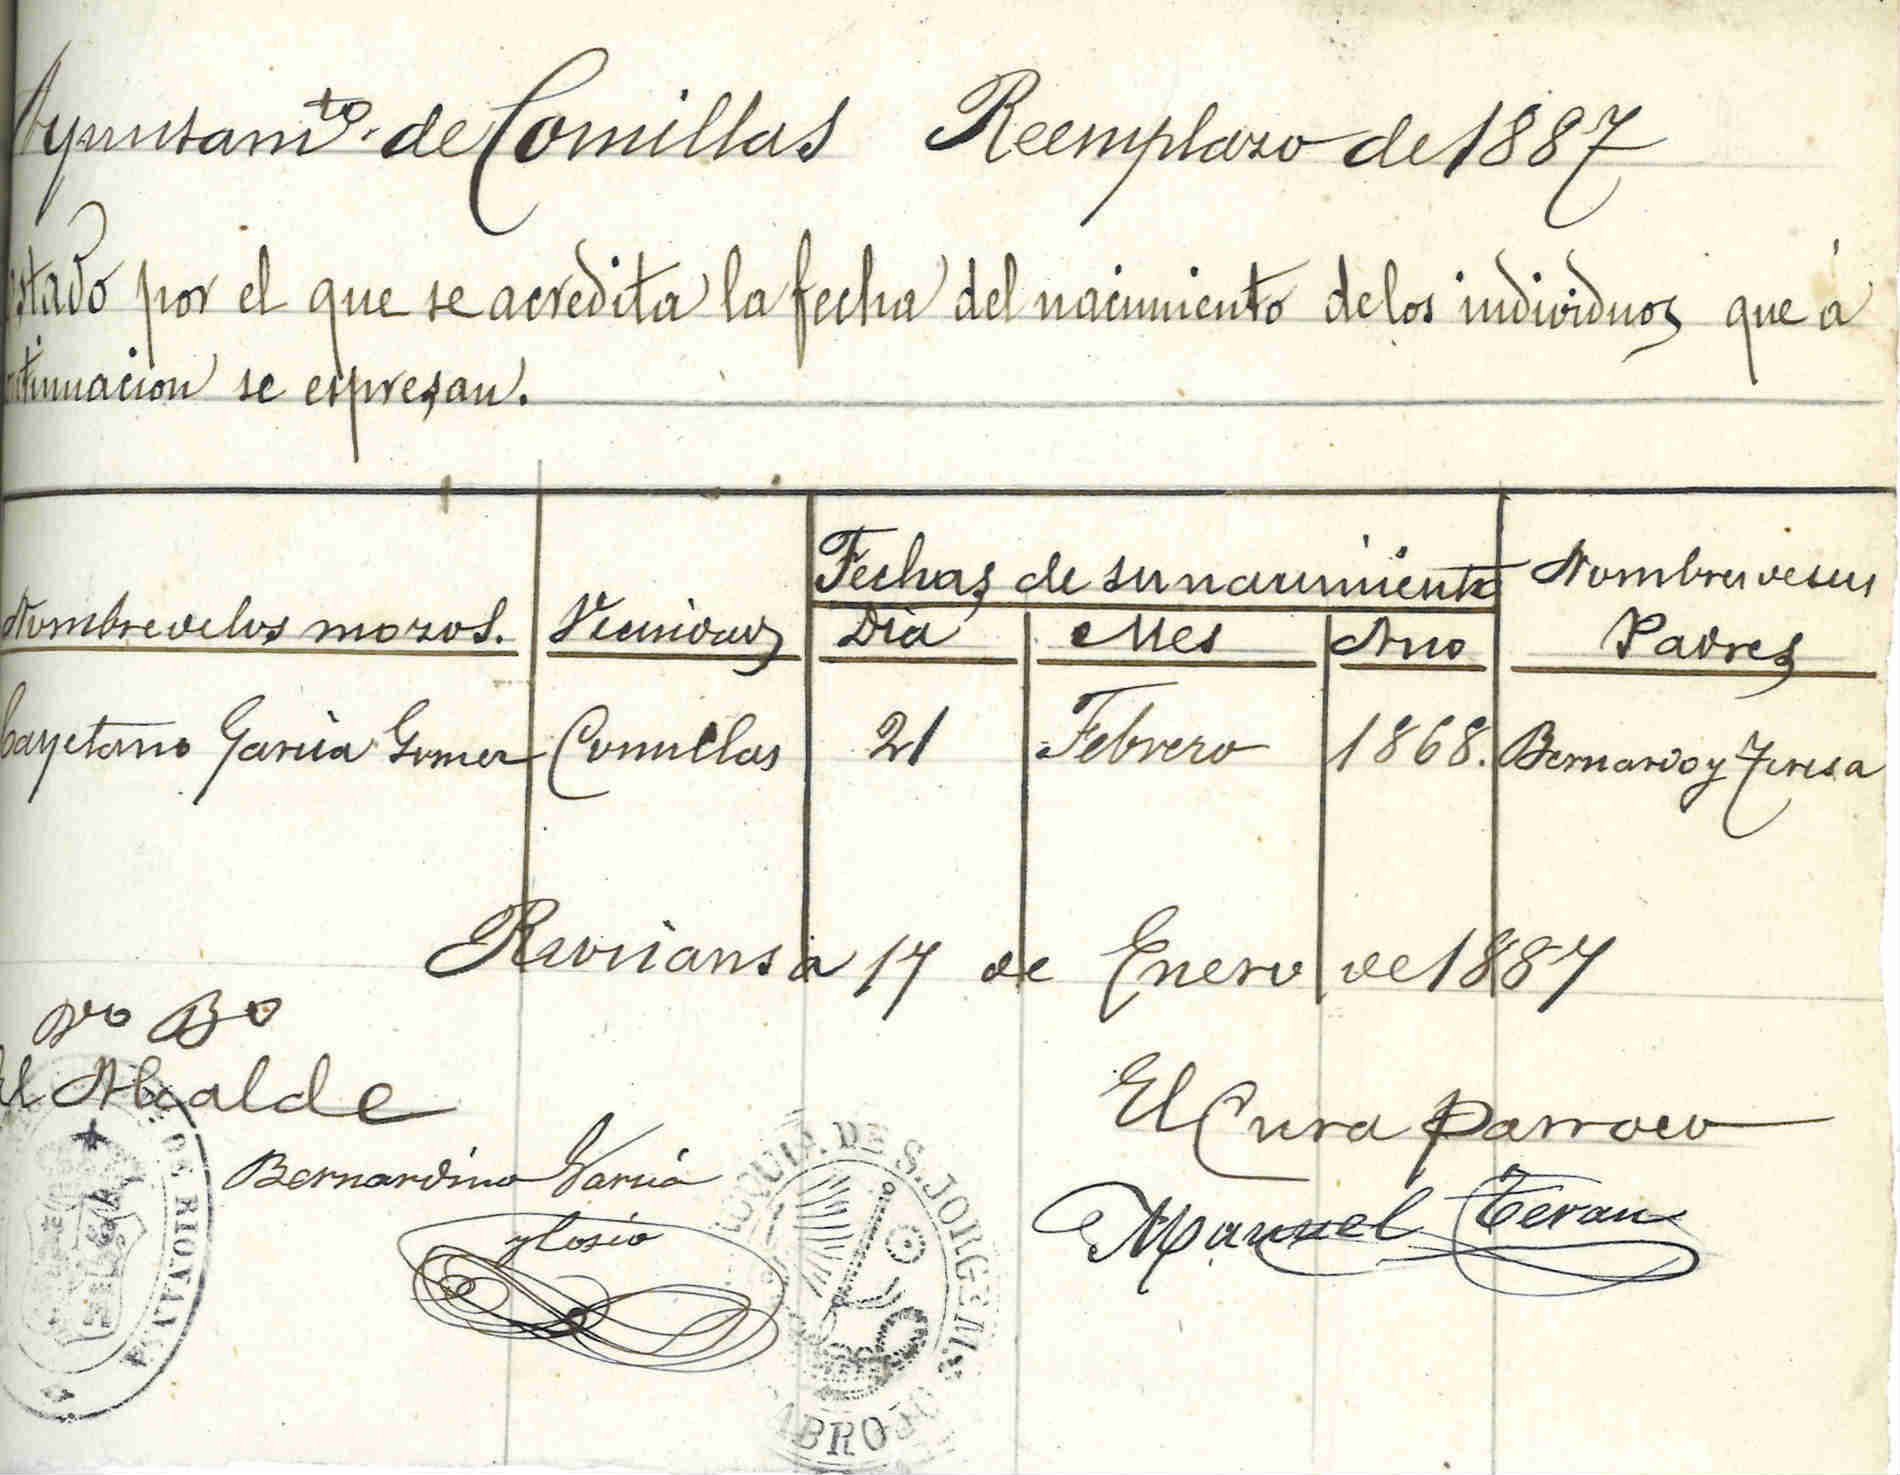 Ayuntamto. de Comillas Reemplazo de 1887
Estado por el que se acredita la fecha del nacimiento de los individuos que á
continuacion se espresan.
Fechas de su nacimiento Nombres de sus
Nombre de los mozos. Vecindad Dia Mes Año Padres
Cayetano Garcia Gomez Comillas 21 Febrero 1868. Bernardo y Teresa
Rivians a 17 de Enero de 1887
Vo Bo
El Alcalde
El Cura Parroco
Bernardino Garcia
y Cosio
Manuel Teran
DE RIOVIANSA
PARROQUIA DE S. JORGE M.
ABRO